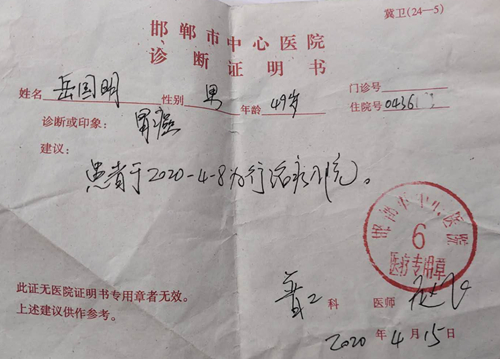 冀卫(24—5)
邯郸市中心医院
诊断证明书
姓名 岳国明 性别 男 年龄 49岁 门诊号
住院号 0436
诊断或印象: 胃癌
建议:
患者于2020-4-8为行治疗入院。
邯郸市中心医院
6
医疗专用章
此证无医院证明书专用章者无效。
上述建议供作参考。
普二 科 医师
2020 年 4 月 15 日